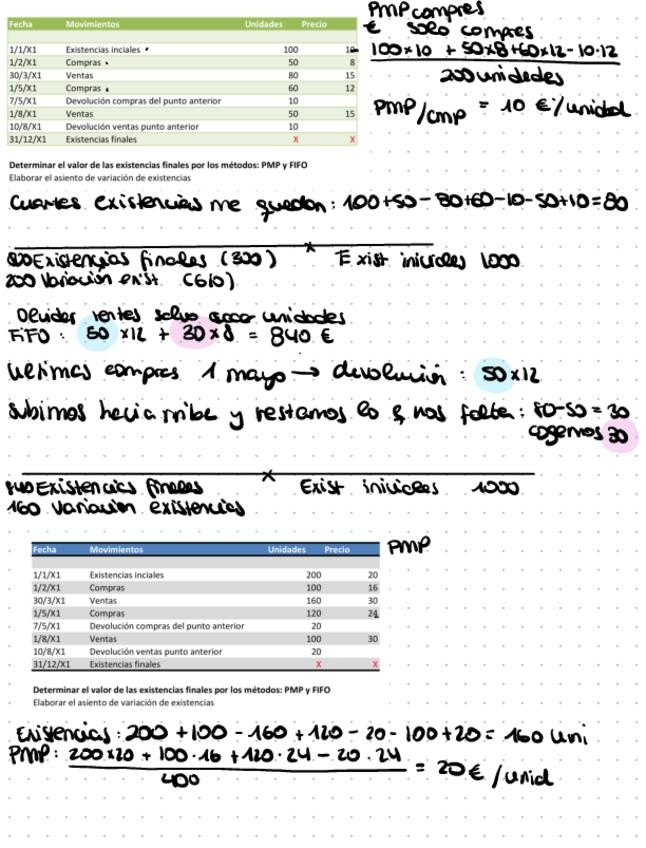 PMP compres
€ solo compres
Fecha Movimientos Unidades Precio
1/1/X1 Existencias inciales 100 10
1/2/X1 Compras 50 8
30/3/X1 Ventas 80 15
1/5/X1 Compras 60 12
7/5/X1 Devolución compras del punto anterior 10
1/8/X1 Ventas 50 15
10/8/X1 Devolución ventas punto anterior 10
31/12/X1 Existencias finales X X
100x10 + 50x8+60x12-10·12
200 unidades
PMP/CMP = 10 €/unidad
Determinar el valor de las existencias finales por los métodos: PMP y FIFO
Elaborar el asiento de variación de existencias
Cuantes existencias me quedan: 100+50-80+60-10-50+10=80
x
800 Existencias finales (300) Exist iniciales 1000
200 Variación exist (610)
Olvidar ventes salvo unidades
FIFO: 50 x12 + 30x8 = 840 €
Ultimas compras 1 mayo → devolución: 50x12
Subimos hacia arriba y restamos lo q nos falta: 80-50=30
cogemos 30
x
840 Existencias finales Exist iniciales 1000
160 Variación existencias
PMP
Fecha Movimientos Unidades Precio
1/1/X1 Existencias inciales 200 20
1/2/X1 Compras 100 16
30/3/X1 Ventas 160 30
1/5/X1 Compras 120 24
7/5/X1 Devolución compras del punto anterior 20
1/8/X1 Ventas 100 30
10/8/X1 Devolución ventas punto anterior 20
31/12/X1 Existencias finales X X
Determinar el valor de las existencias finales por los métodos: PMP y FIFO
Elaborar el asiento de variación de existencias
Existencias: 200+100-160+120-20-100+20= 160 uni
PMP: 200x20 + 100·16 +120·24 - 20·24
400
= 20€/unid